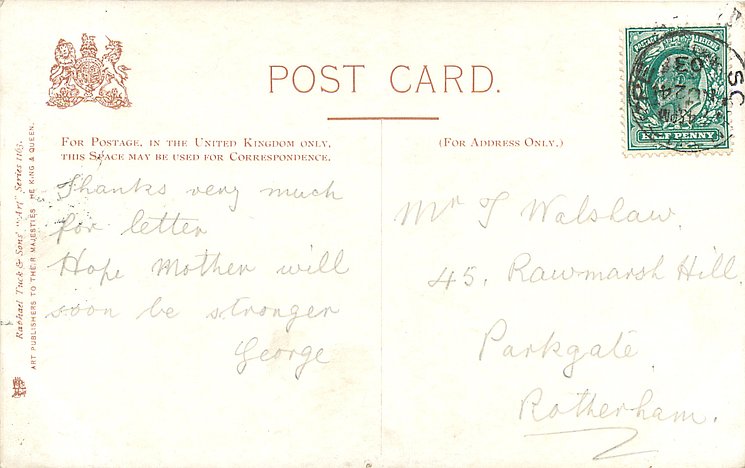 POST CARD.
FOR POSTAGE, IN THE UNITED KINGDOM ONLY,
THIS SPACE MAY BE USED FOR CORRESPONDENCE.
(FOR ADDRESS ONLY.)
Thanks very much
for letter
Hope Mother will
soon be stronger
George
Mr T Walshaw,
45, Rawmarsh Hill.
Parkgate,
Rotherham.
Raphael Tuck & Sons' "Art" Series 1163.
ART PUBLISHERS TO THEIR MAJESTIES THE KING & QUEEN.
HALF PENNY
SC
24
03